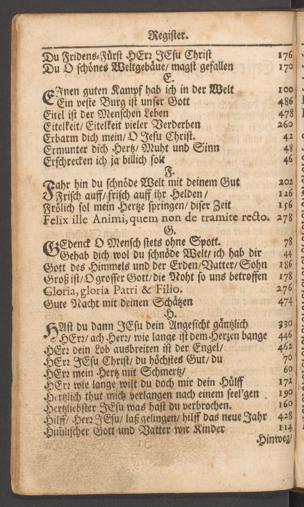 Register.
Du Fridens-Fürst HErr JEsu Christ 176
Du O schönes Weltgebäue/ magst gefallen 170
E.
EInen guten Kampf hab ich in der Welt 100
Ein veste Burg ist unser Gott 486
Eitel ist der Menschen Leben 478
Eitelkeit/ Eitelkeit vieler Verderben 260
Erbarm dich mein/ O JEsu Christ. 42
Ermunter dich Hertz/ Muht und Sinn 48
Erschrecken ich ja billich solt 46
F.
FAhr hin du schnöde Welt mit deinem Gut 202
Frisch auff/ frisch auff ihr Helden/ 126
Frölich sol mein Hertze springen/ diser Zeit 156
Felix ille Animi, quem non de tramite recto. 278
G.
GEdenck O Mensch stets ohne Spott. 78
Gehab dich wol du schnöde Welt/ ich hab dir 44
Gott des Himmels und der Erden/ Vatter/ Sohn 186
Groß ist/ O grosser Gott/ die Noht so uns betroffen 178
Gloria, gloria Patri & Filio. 276
Gute Nacht mit deinen Schätzen 474
H.
HAst du dann JEsu dein Angesicht gäntzlich 330
HErr/ ach HErr/ wie lange ist dem Hertzen bange 446
HErr dein Lob ausbreiten ist der Engel/ 462
HErr JEsu Christ/ du höchstes Gut/ du 70
HErr mein Hertz mit Schmertz/ 60
HErr wie lange wilt du doch mir dein Hülff 172
Hertzlich thut mich verlangen nach einem seel'gen 190
Hertzliebster JEsu was hast du verbrochen. 160
Hilff/ HErr JEsu/ laß gelingen/ hilff das neue Jahr 428
Himlischer Gott und Vatter wir Kinder 114
Hinweg/